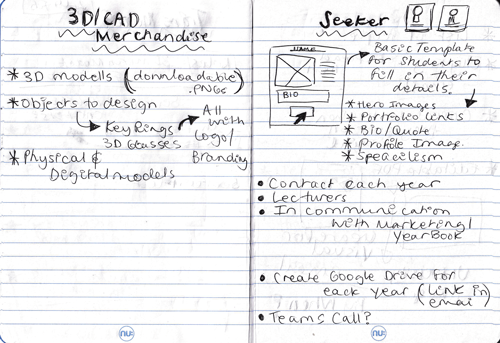 3D/CAD
Merchandise
* 3D modells (downloadable
.PNGs)
* Objects to design
Key Rings
3D Glasses
All
with
Logo/
Branding
* Physical &
Degital models
nu:
Seeker
NAME
BIO
Basic Template
for Students to
fill in their
details.
* Hero Images
* Portfolio links
* Bio/Quote
* Profile Image.
* Speacilism
• Contact each year
• Lecturers
• In communication
with Marketing/
YearBook
• Create Google Drive for
each year (link in
emai)
• Teams Call?
nu: